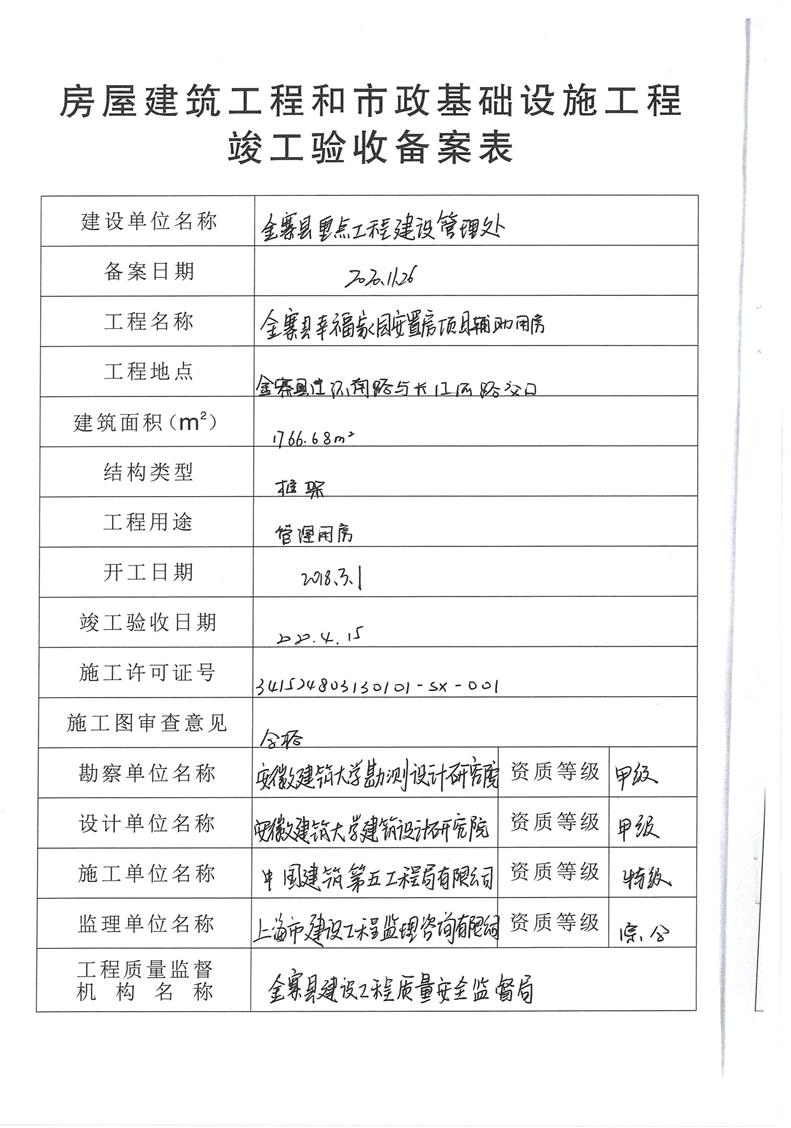 房屋建筑工程和市政基础设施工程
竣工验收备案表
建设单位名称 金寨县重点工程建设管理处
备案日期 2020.11.26
工程名称 金寨县幸福家园安置房项目辅助用房
工程地点 金寨县 路与长江河路交口
建筑面积(m²) 1766.68m²
结构类型 框架
工程用途 管理用房
开工日期 2018.3.1
竣工验收日期 2020.4.15
施工许可证号 341524803130101-SX-001
施工图审查意见 合格
勘察单位名称 安徽建筑大学勘测设计研究院 资质等级 甲级
设计单位名称 安徽建筑大学建筑设计研究院 资质等级 甲级
施工单位名称 中国建筑第五工程局有限公司 资质等级 特级
监理单位名称 上海市建设工程监理咨询有限公司 资质等级 综合
工程质量监督
机构名称 金寨县建设工程质量安全监督局